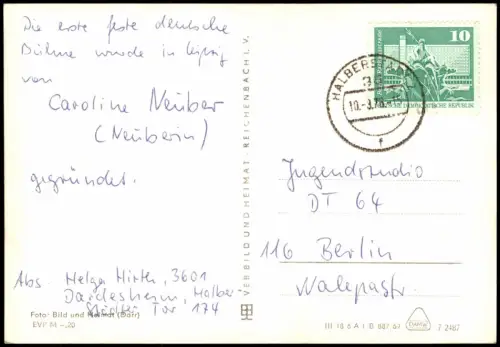 Die erste feste deutsche
Bühne wurde in Leipzig
von
Caroline Neuber
(Neuberin)
gegründet.
Abs. Helga Hirth, 3601
Dardesheim, Halber-
städter Tor 174
Foto: Bild und Heimat (Darr)
EVP M -,20
VEB BILD UND HEIMAT REICHENBACH I. V.
10
DEUTSCHE DEMOKRATISCHE REPUBLIK
HALBERSTADT
Jugendstudio
DT 64
116 Berlin
Nalepastr.
III 18 6 A 1 B 687/67
7 2467